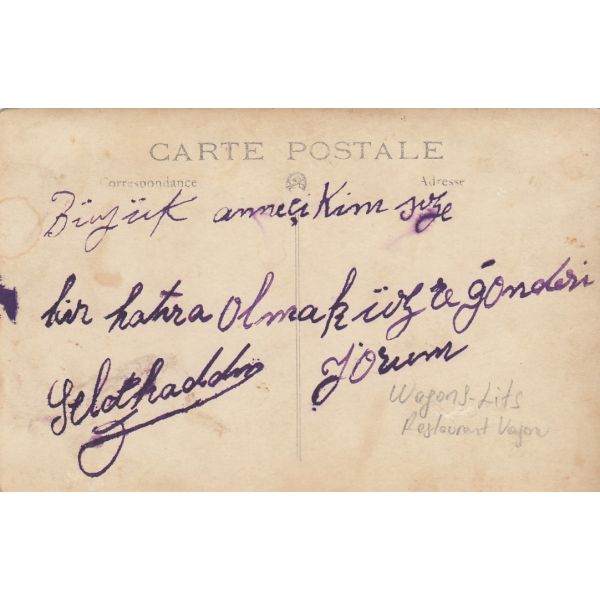 CARTE POSTALE
Correspondance
Adresse
Büyük anneçikim size
bir hatıra olmak üzre gönderi
yorum
Selathaddin
Wagons-Lits
Restaurant Vagon